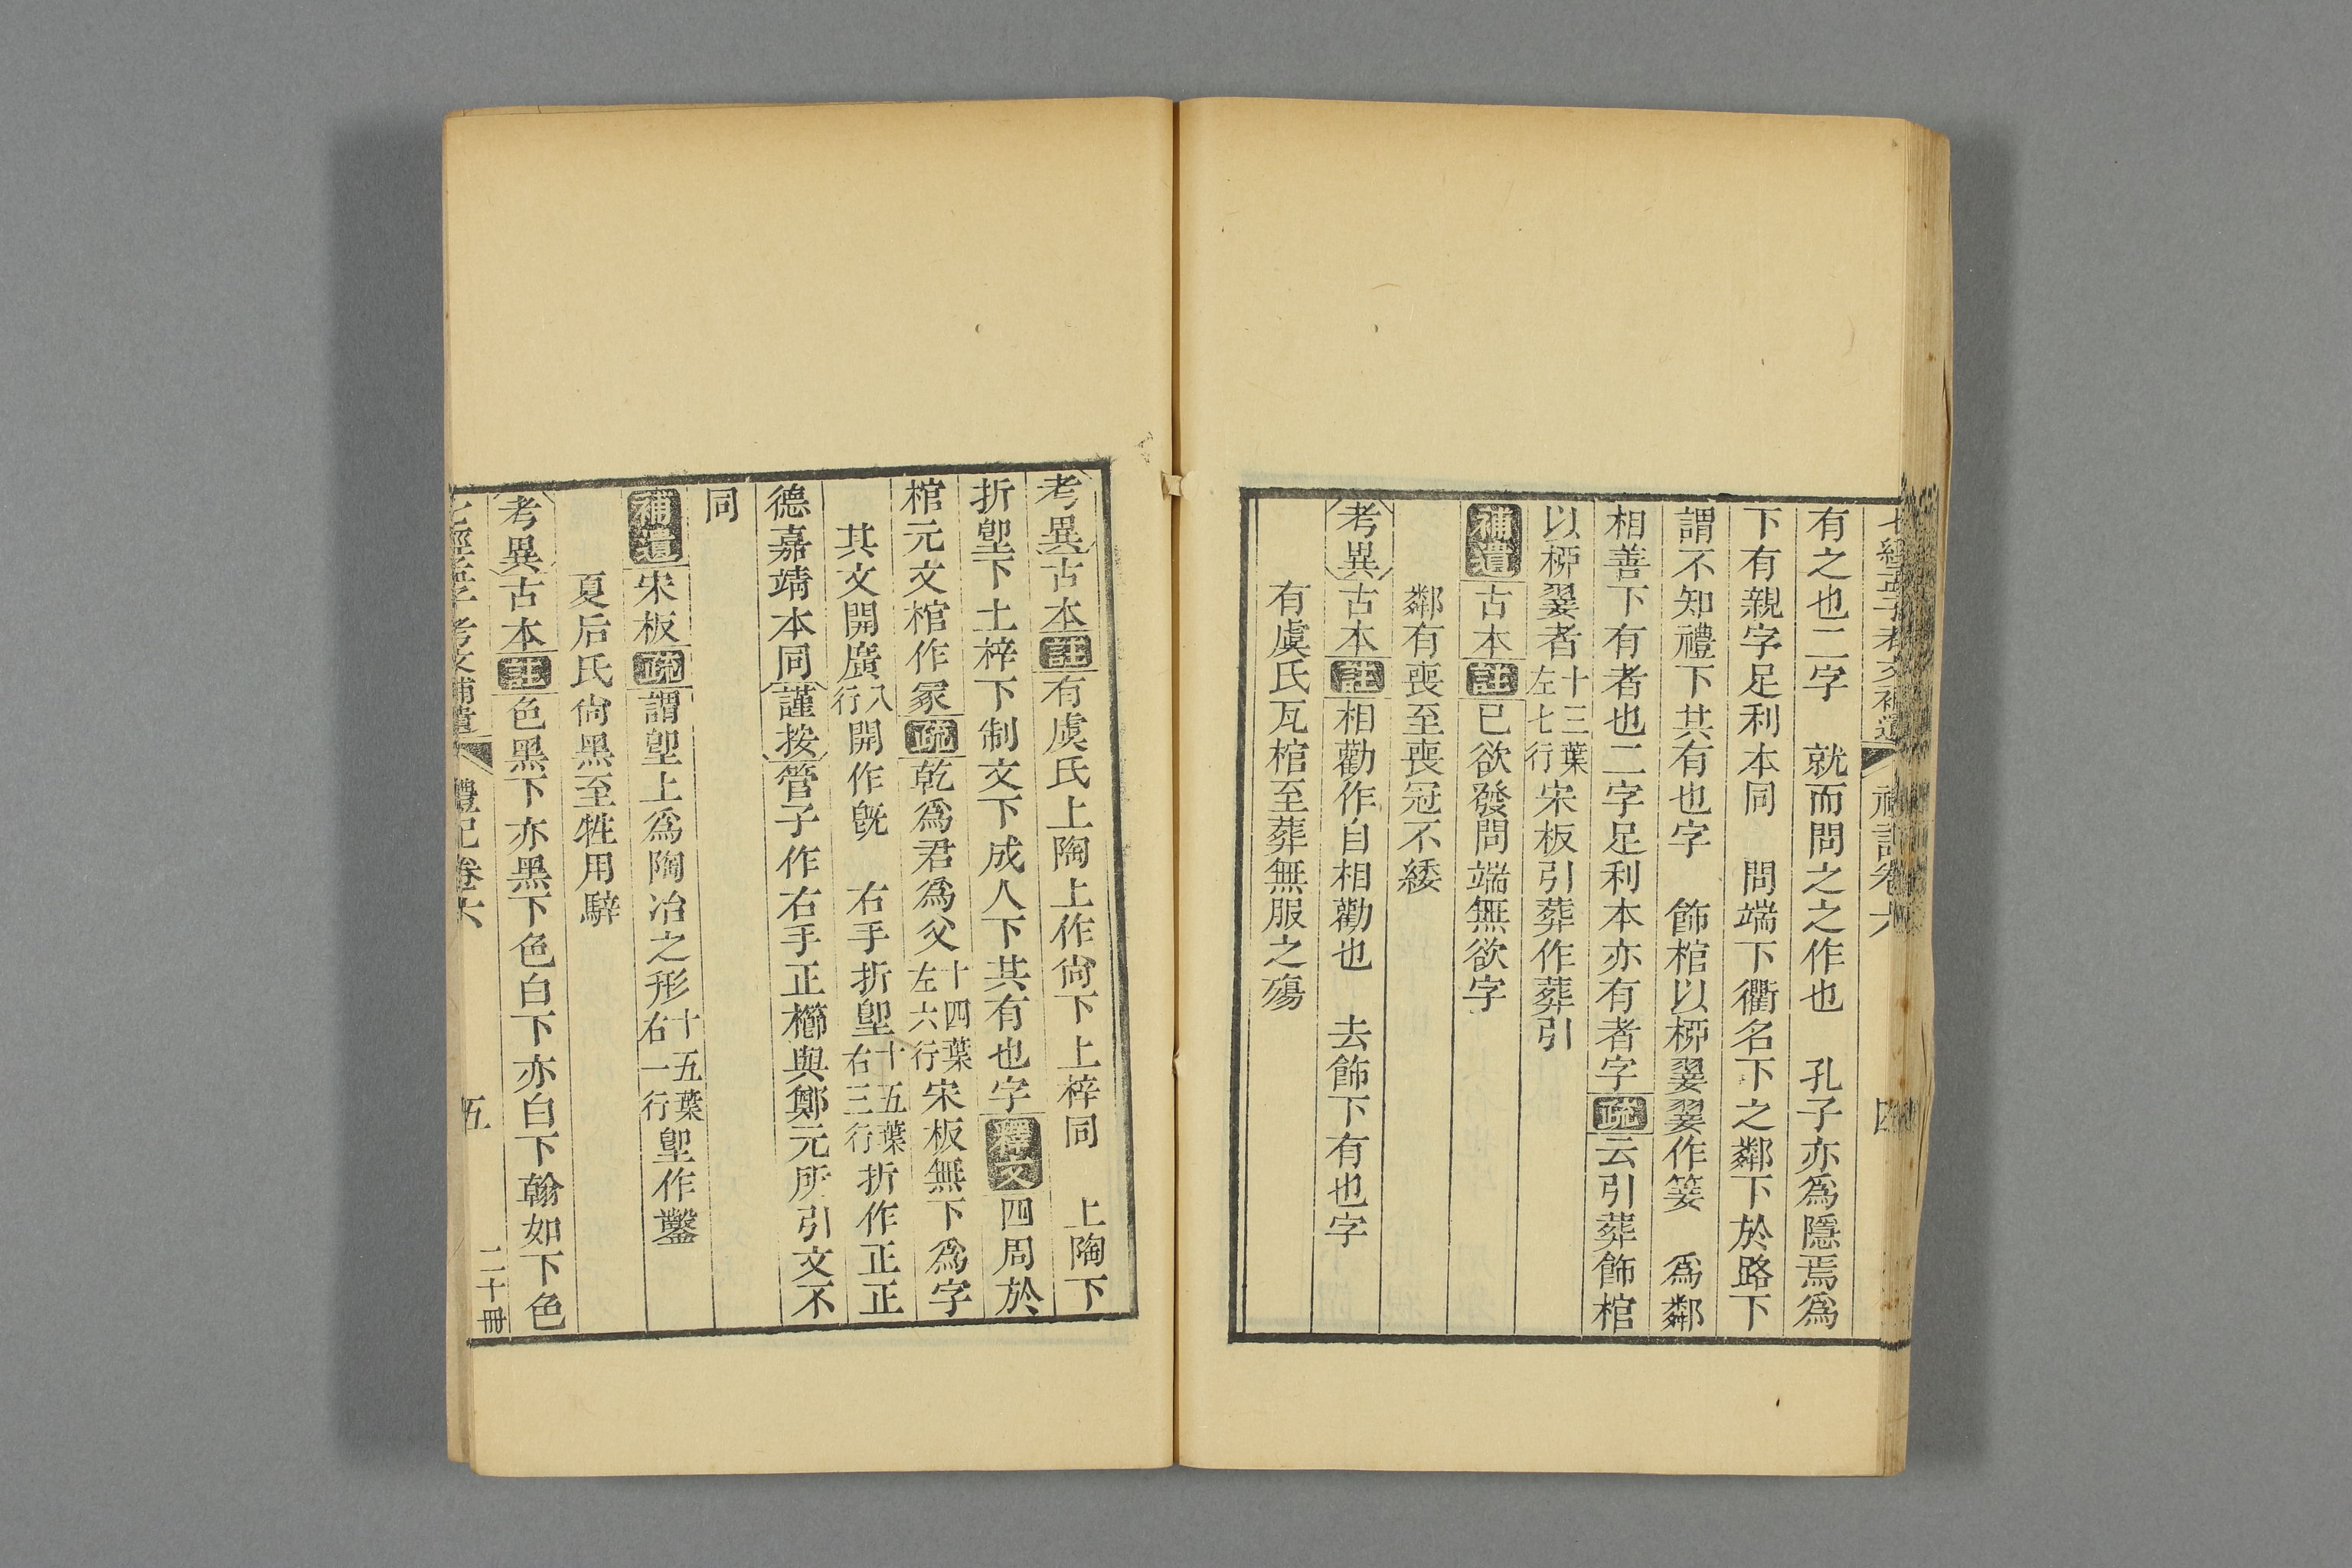 七經孟子考文補遺 禮記卷六 四
有之也二字　就而問之之作也　孔子亦爲隱焉爲
下有親字足利本同　問端下衢名下之鄰下於路下
謂不知禮下其有也字　飾棺以桺翣翣作䈉　爲鄰
相善下有者也二字足利本亦有者字疏云引葬飾棺
以桺翣者十三葉左七行宋板引葬作葬引
補遺古本註已欲發問端無欲字
鄰有喪至喪冠不緌
考異古本註相勸作自相勸也　去飾下有也字
有虞氏瓦棺至葬無服之殤
考異古本註有虞氏上陶上作尙下上梓同　上陶下
折堲下土梓下制文下成人下其有也字釋文四周於
棺元文棺作冢疏乾爲君爲父十四葉左六行宋板無下爲字
其文開廣八行開作旣　右手折堲十五葉右三行折作正正
德嘉靖本同謹按管子作右手正櫛與鄭元所引文不
同
補遺宋板疏謂堲上爲陶冶之形十五葉右一行堲作鑿
夏后氏尙黑至牲用騂
考異古本註色黑下亦黑下色白下亦白下翰如下色
七經孟子考文補遺 禮記卷六 五 二十冊